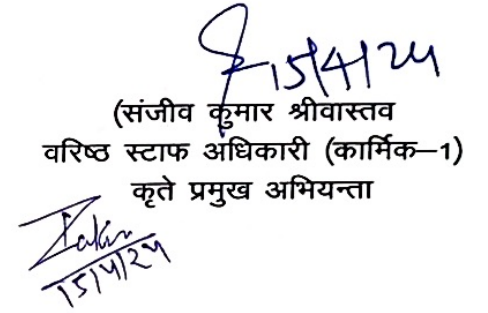 15/4/24
(संजीव कुमार श्रीवास्तव
वरिष्ठ स्टाफ अधिकारी (कार्मिक–1)
कृते प्रमुख अभियन्ता
15/4/24